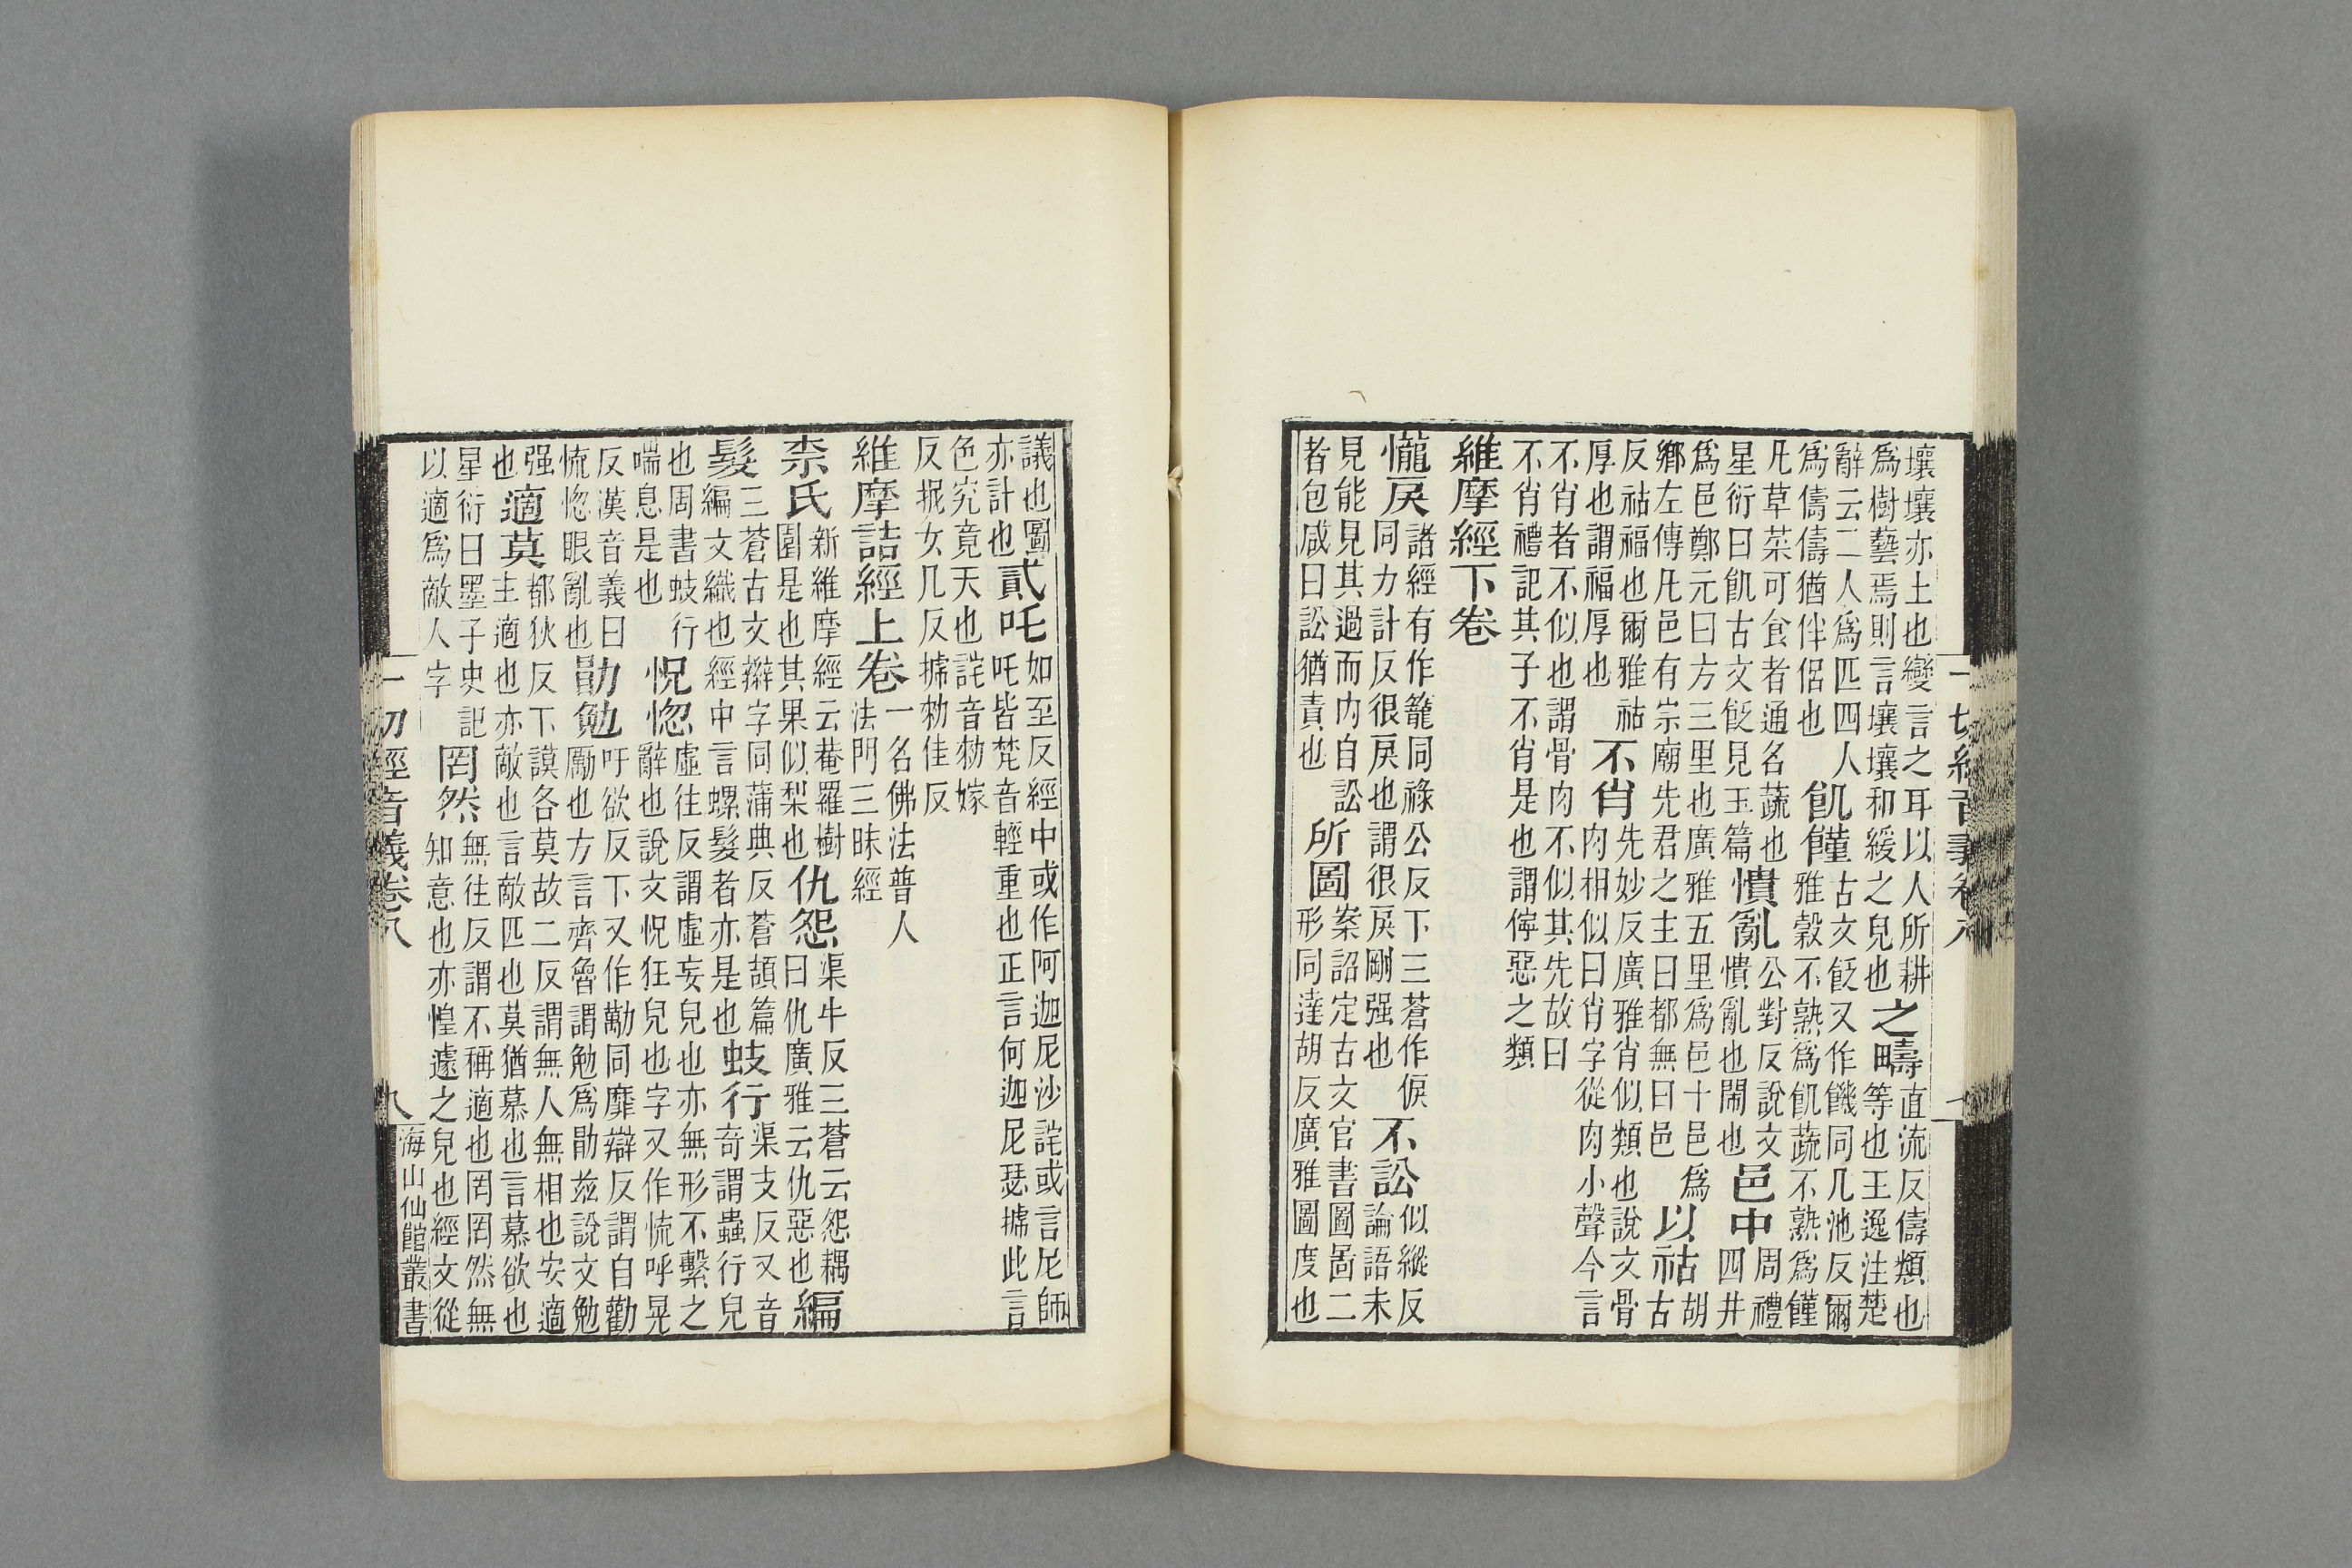 壤壤亦土也變言之耳以人所耕
爲樹藝焉則言壤壤和緩之皃也
之疇
直流反儔類也
等也王逸注楚
辭云二人爲匹四人
爲儔儔猶伴侶也
飢饉
古文飥又作饑同几池反爾
雅穀不熟爲飢蔬不熟爲饉
凡草菜可食者通名蔬也
星衍曰飢古文飥見玉篇
憒亂
公對反說文
憒亂也閙也
邑中
周禮
四井
爲邑鄭元曰方三里也廣雅五里爲邑十邑爲
鄉左傳凡邑有宗廟先君之主曰都無曰邑
以祜
胡
古
反祜福也爾雅祜
厚也謂福厚也
不肖
先妙反廣雅肖似類也說文骨
肉相似曰肖字從肉小聲今言
不肖者不似也謂骨肉不似其先故曰
不肖禮記其子不肖是也謂儜惡之類
維摩經下卷
儱戾
諸經有作籠同祿公反下三蒼作悷
同力計反很戾也謂很戾剛强也
不訟
似縱反
論語未
見能見其過而内自訟
者包咸曰訟猶責也
所圖
案詔定古文官書圖啚二
形同達胡反廣雅圖度也
一切經音義卷八
議也圖
亦計也
貳吒
如至反經中或作阿迦尼沙詫或言尼師
吒皆梵音輕重也正言何迦尼瑟搋此言
色究竟天也詫音勑嫁
反抳女几反搋勑佳反
維摩詰經上卷
一名佛法普人
法門三昧經
柰氏
新維摩經云菴羅樹
園是也其果似梨也
仇怨
渠牛反三蒼云怨耦
曰仇廣雅云仇惡也
編
髮
三蒼古文辮字同蒲典反蒼頡篇
編文織也經中言螺髮者亦是也
蚑行
渠支反又音
奇謂蟲行皃
也周書蚑行
喘息是也
怳惚
虛往反謂虛妄皃也亦無形不繫之
辭也說文怳狂皃也字又作慌呼晃
反漢音義曰
慌惚眼亂也
勖勉
吁欲反下又作勱同靡辯反謂自勸
勵也方言齊魯謂勉爲勖兹說文勉
强
也
適莫
都狄反下謨各莫故二反謂無人無相也安適
主適也亦敵也言敵匹也莫猶慕也言慕欲也
星衍曰墨子史記
以適爲敵人字
罔然
無往反謂不稱適也罔罔然無
知意也亦惶遽之皃也經文從
一切經音義卷八
九
海山仙館叢書